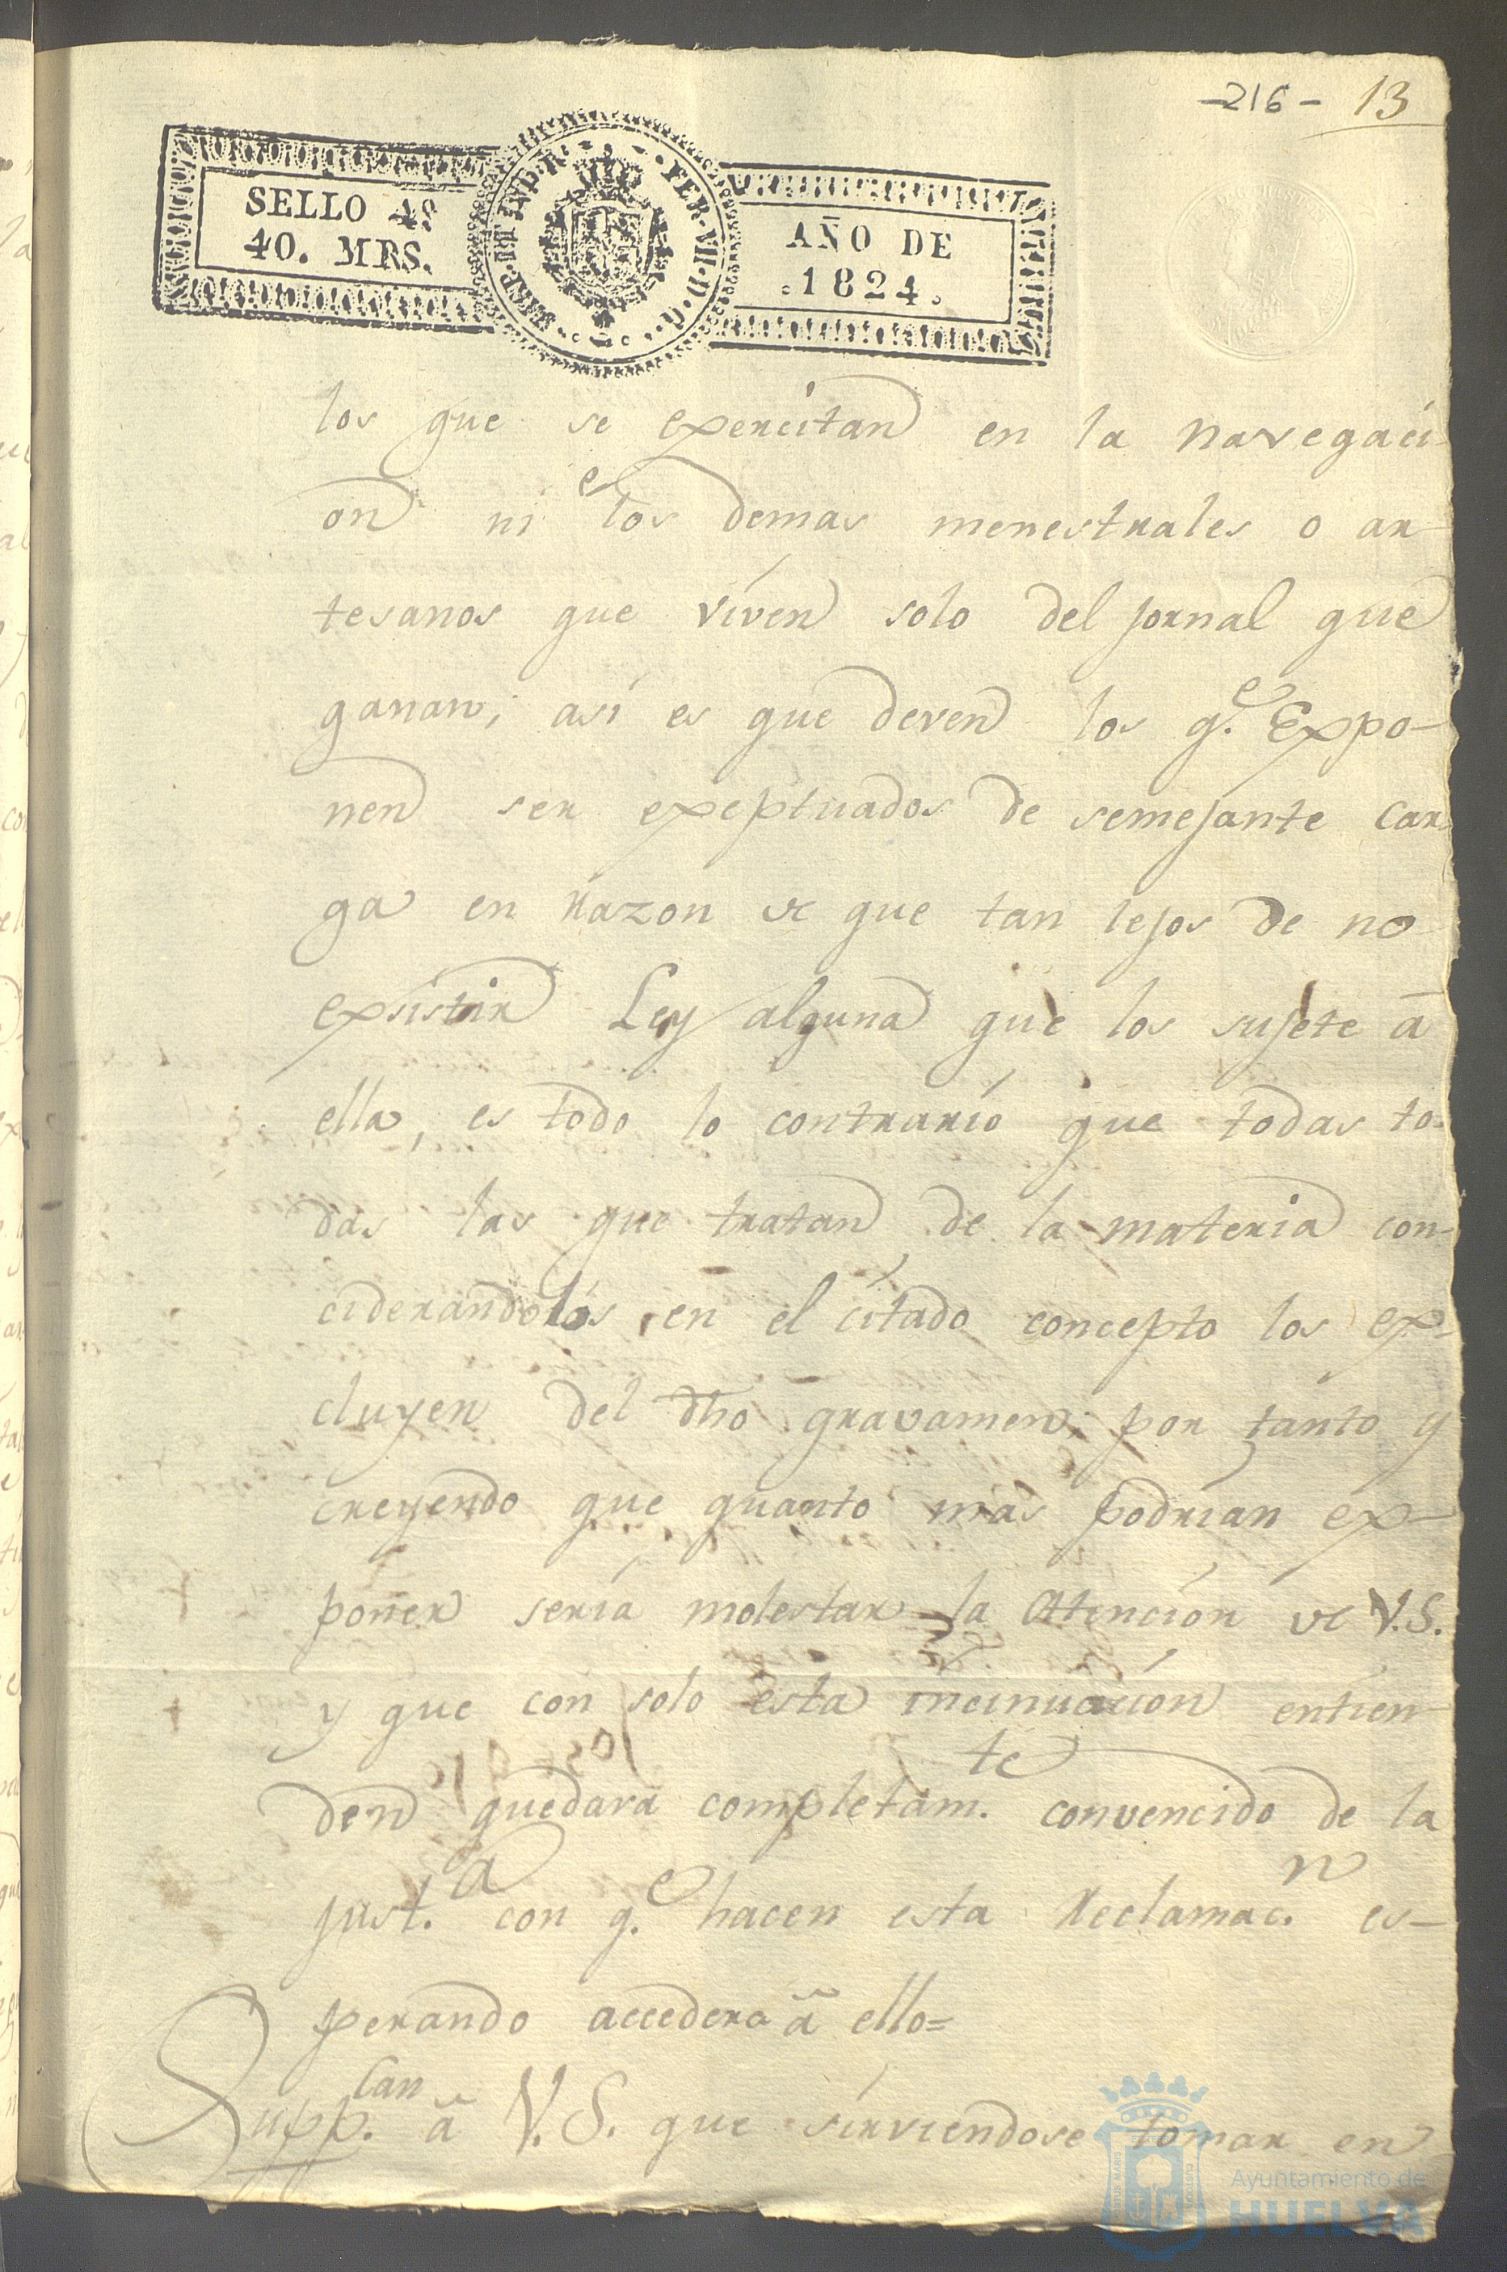 -216- 13
SELLO 4º
40. MRS.
HISP. ET IND. R. FER. VII. D. G.
AÑO DE
.1824.
los que se exercitan en la navegaci-
on ni los demas menestrales o ar-
tesanos que viven solo del jornal que
ganan; así es que deven los q.e Expo-
nen ser exeptuados de semejante car-
ga en razon de que tan lejos de no
existir Ley alguna que los sujete á
ella, es todo lo contrario que todas to-
das las que tratan de la materia con-
ciderandolos en el citado concepto los ex-
cluyen del dho gravamen; por tanto y
creyendo que quanto mas podrian ex-
poner sería molestar la Atencion de V.S.
y que con solo esta incinuacion entien-
den quedará completam.te convencido de la
just.a con q.e hacen esta reclamac.n es-
perando accederá á ello=
Supp.can á V.S. que sirviendose tomar en
Ayuntamiento de
HUELVA